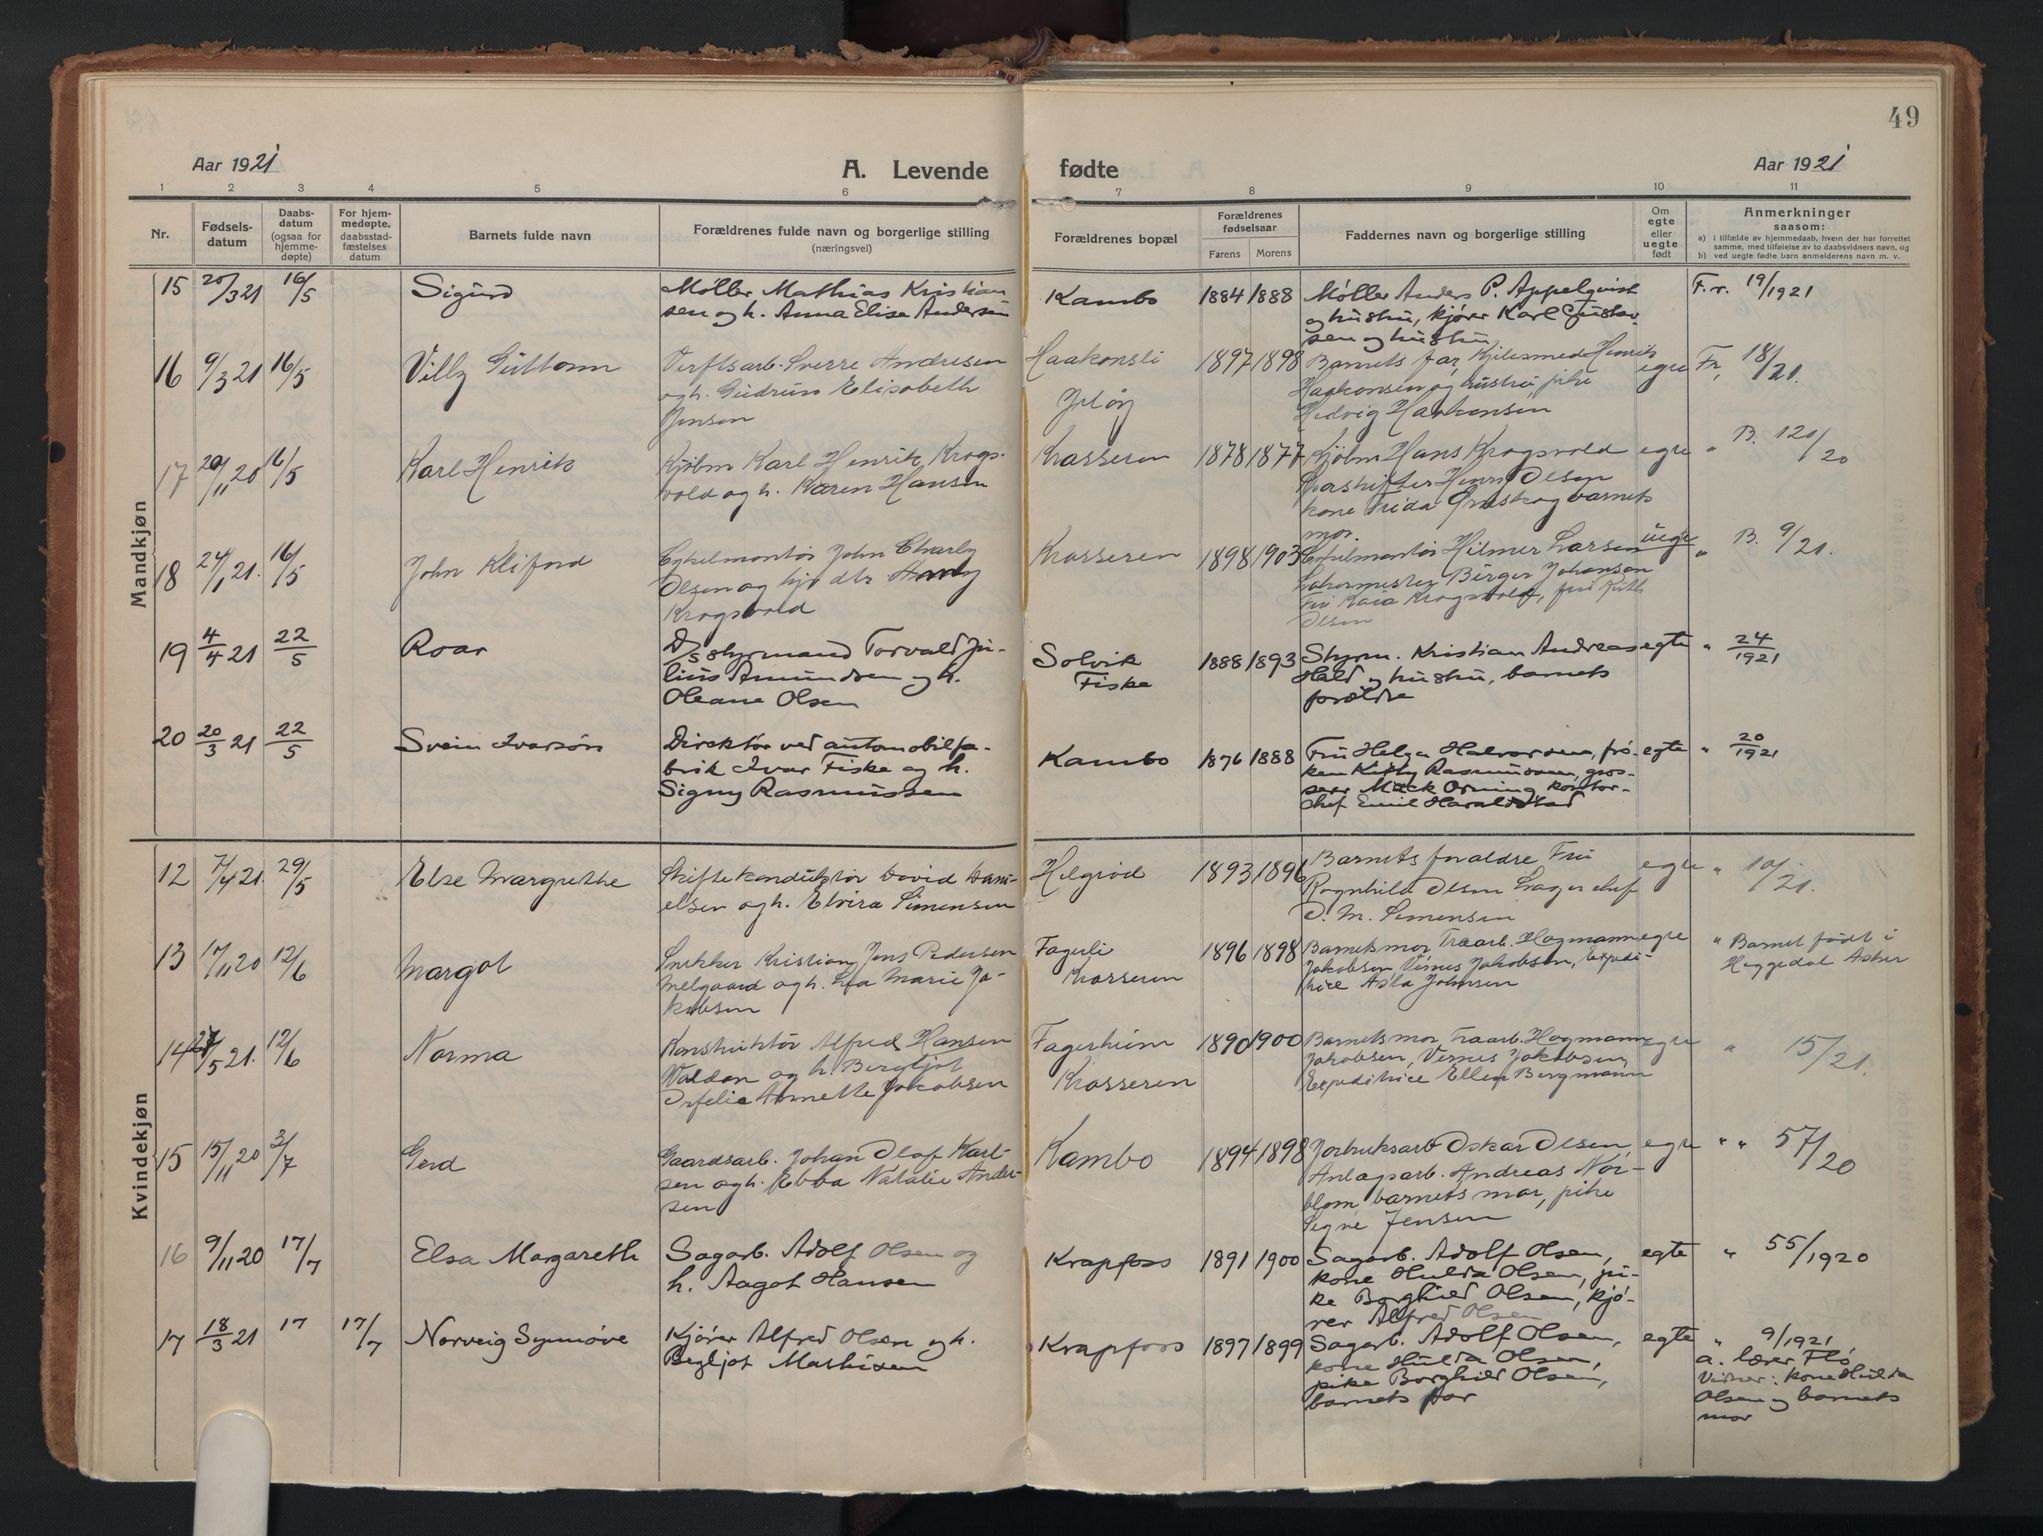 49
Aar 1921
A. Levende
fødte
Aar 1921
1 2 3 4 5 6 7 8 9 10 11
Nr.
Fødsels-
datum
Daabs-
datum
(ogsaa for
hjemme-
døpte)
For hjem-
medøpte,
daabsstad-
fæstelses
datum
Barnets fulde navn
Forældrenes fulde navn og borgerlige stilling
(næringsvei)
Forældrenes bopæl
Forældrenes
fødselsaar
Farens Morens
Faddernes navn og borgerlige stilling
Om
egte
eller
uegte
født
Anmerkninger
saasom:
a) i tilfælde av hjemmedaab, hvem der har forrettet
samme, med tilføielse av to daabsvidners navn, og
b) ved uegte fødte barn anmelderens navn m. v.
Mandkjøn
15 20/3 21 16/5 Sigurd
Møller Mathias Kristian
sen og h. Anna Elise Andersen
Kambo 1884 1888
Møller Anders P. Appelqvist
og hustru, kjører Karl Gustav-
sen og hustru
F. r. 19/1921
16 9/3 21 16/5 Villy Guttorm
Verftsarb. Sverre Andresen
og h. Gudrun Elisabeth
Jensen
Haakonsli
Jeløy
1897 1898
Barnets far, Kjelesmed Henrik
Haakonsen og hustru, pike
Hedvig Haakonsen
egte Fr. 18/21.
17 20/11 20 16/5 Karl Henrik
Kjøbm Karl Henrik Krogs-
vold og h. Karen Hansen
Krosseren 1878 1877
Kjøbm Hans Krogsvold
Henry Olsen
kone Frida barnets
mor.
egte " B. 120/20
18 24/1 21. 16/5 John Kliford
Cykelmontør John Charly
Olsen og
Krogsvold
Krosseren 1898 1903
Cykelmontør Hilmer Larsen
Birger Johansen
Kaia Krogsvold,
Olsen
uegte " B. 9/21.
19 4/4 21 22/5 Roar
D/S styrmand Torvald Ju-
lius Amundsen og h.
Oleane Olsen
Solvik
Fiske
1888 1893
Styrm. Kristian Andreas
Hald og hustru, barnets
forældre
egte " 24/1921
20 20/3 21 22/5 Svein Ivarsøn
Direktør ved automobilfa-
brik Ivar Fiske og h.
Signy Rasmussen
Kambo 1876 1888
Fru Helga Halvorsen, frø-
ken Kitty Rasmussen, gros-
serer Mack Orning, kontor-
chef Emil Haraldstad
egte " 20/1921
Kvindekjøn
12 7/4 21. 29/5 Else Margrethe
Skiftekonduktør David Dani-
elsen og h. Elvira Simensen
Helgerød 1893 1896
Barnets foraldre Fru
Ragnhild Olsen Lagerchef
O. M. Simensen
egte " 10/21.
13 17/11 20 12/6 Margot
Snekker Kristian Jens Pedersen
Melgaard og h. Marie Ja-
kobsen
Fagerli
Krosseren
1896 1898
Barnets mor Traarb. Hagmann
Jakobsen, Vernes Jakobsen, Expedi-
trice Asla Johnsen
egte " Barnet født i
Heggedal Asker
14 5 21. 12/6 Norma
Konstruktør Alfred Hansen
Valdon og h. Bergljot
Orfelie Annette Jakobsen
Fagerheim
Krosseren
1890 1900
Barnets mor Traarb. Hagmann
Jakobsen, Vernes Jakobsen
Expeditrice Ellen Bergmann
egte " 15/21.
15 15/11 20 3/7 Gerd
Gaardsarb. Johan Olaf Karl-
sen og h. Ebba Natalie Ander-
sen
Kambo 1894 1898
Jorbruksarb Oskar Olsen
Anlagsarb. Andreas Nor-
blom, barnets mor, pike
Signe Jensen
egte " " 57/20
16 9/11 20 17/7 Elsa Margareth
Sagarb. Adolf Olsen og
h. Aagot Hansen
Krapfoss 1891 1900
Sagarb. Adolf Olsen,
kone Hulda Olsen, pi-
ke Borghild Olsen, kjø-
rer Alfred Olsen
egte " 55/1920
17 18/3 21 17 17/7 Norveig Synnøve
Kjører Alfred Olsen og h.
Bergljot Mathisen
Krapfoss 1897 1899
Sagarb. Adolf Olsen,
kone Hulda Olsen,
pike Borghild Olsen,
barnets far
egte " 9/1921
a. lærer Flø
Vidner: kone Hulda
Olsen og barnets
mor